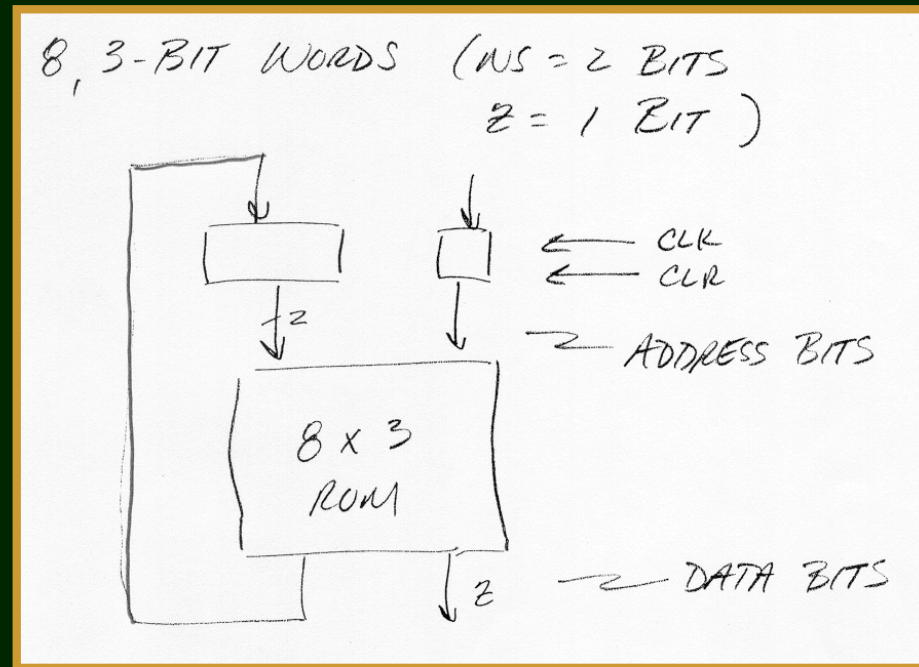 8, 3-BIT WORDS (NS = 2 BITS
Z = 1 BIT)
CLK
CLR
2
ADDRESS BITS
8 x 3
ROM
Z
DATA BITS